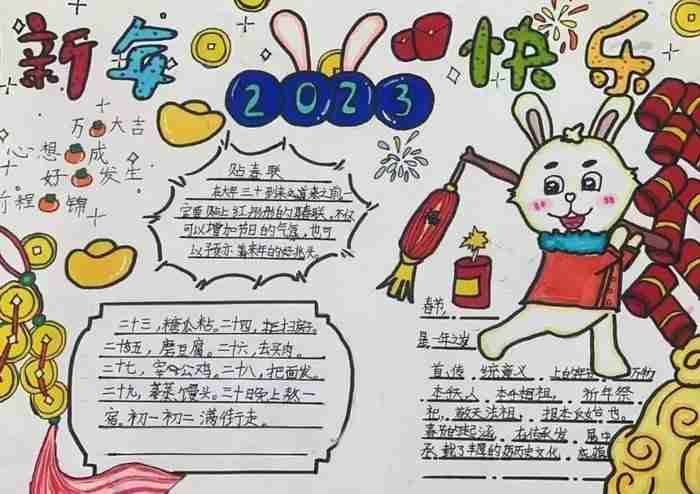 新年快乐
2023
万大吉
心想成
好发生
前程锦
贴春联
在大年三十到来之前
一定要贴上红彤彤的春联，不仅
可以增加节日的气氛，也可
以预示着来年的好兆头。
二十三，糖瓜粘。二十四，扫房
二十五，磨豆腐。二十六，去买肉。
二十七，宰公鸡。二十八，把面发。
二十九，蒸馒头。三十晚上熬一
宿。初一初二满街走。
春节，
是一年之岁
首，传 意义 上的
本 人 本 祖 祈年祭
祀，敬天法祖， 报本 始 也。
春节的起 在传承发
承载了丰 的历史文化